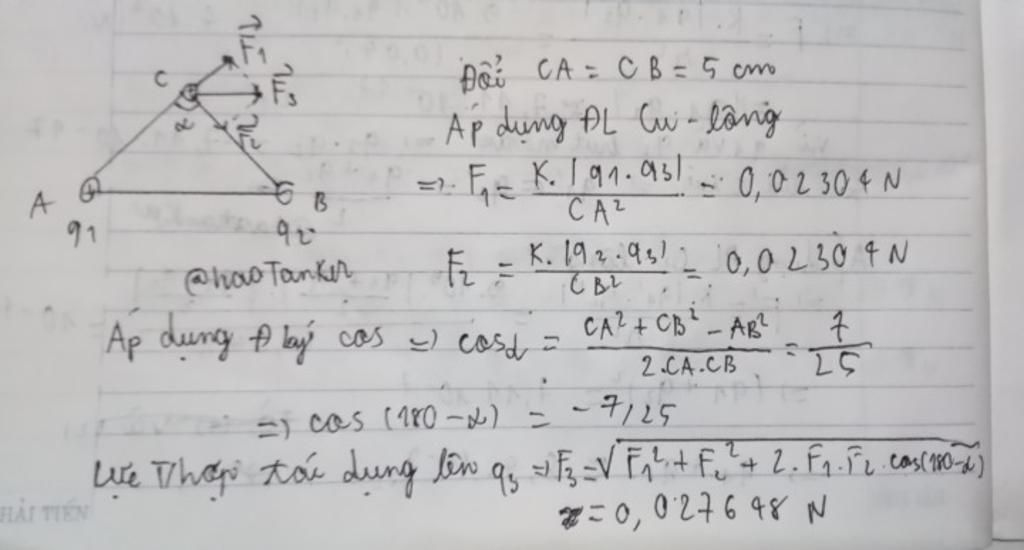 F₁
C
F₃
α
F₂
A
B
q1
q2
@haoTanker
Đổi CA = CB = 5 cm
Áp dụng ĐL Cu-lông
=> F₁ = K.|q1.q3| / CA² = 0,02304 N
F₂ = K.|q2.q3| / CB² = 0,02304 N
Áp dụng Đ lý cos => cosα = CA² + CB² - AB² / 2.CA.CB = 7 / 25
=> cos (180-α) = -7/25
Lực Thợp tác dụng lên q3 => F₃ = √F₁² + F₂² + 2.F₁.F₂.cos(180-α)
= 0,027648 N
HẢI TIẾN